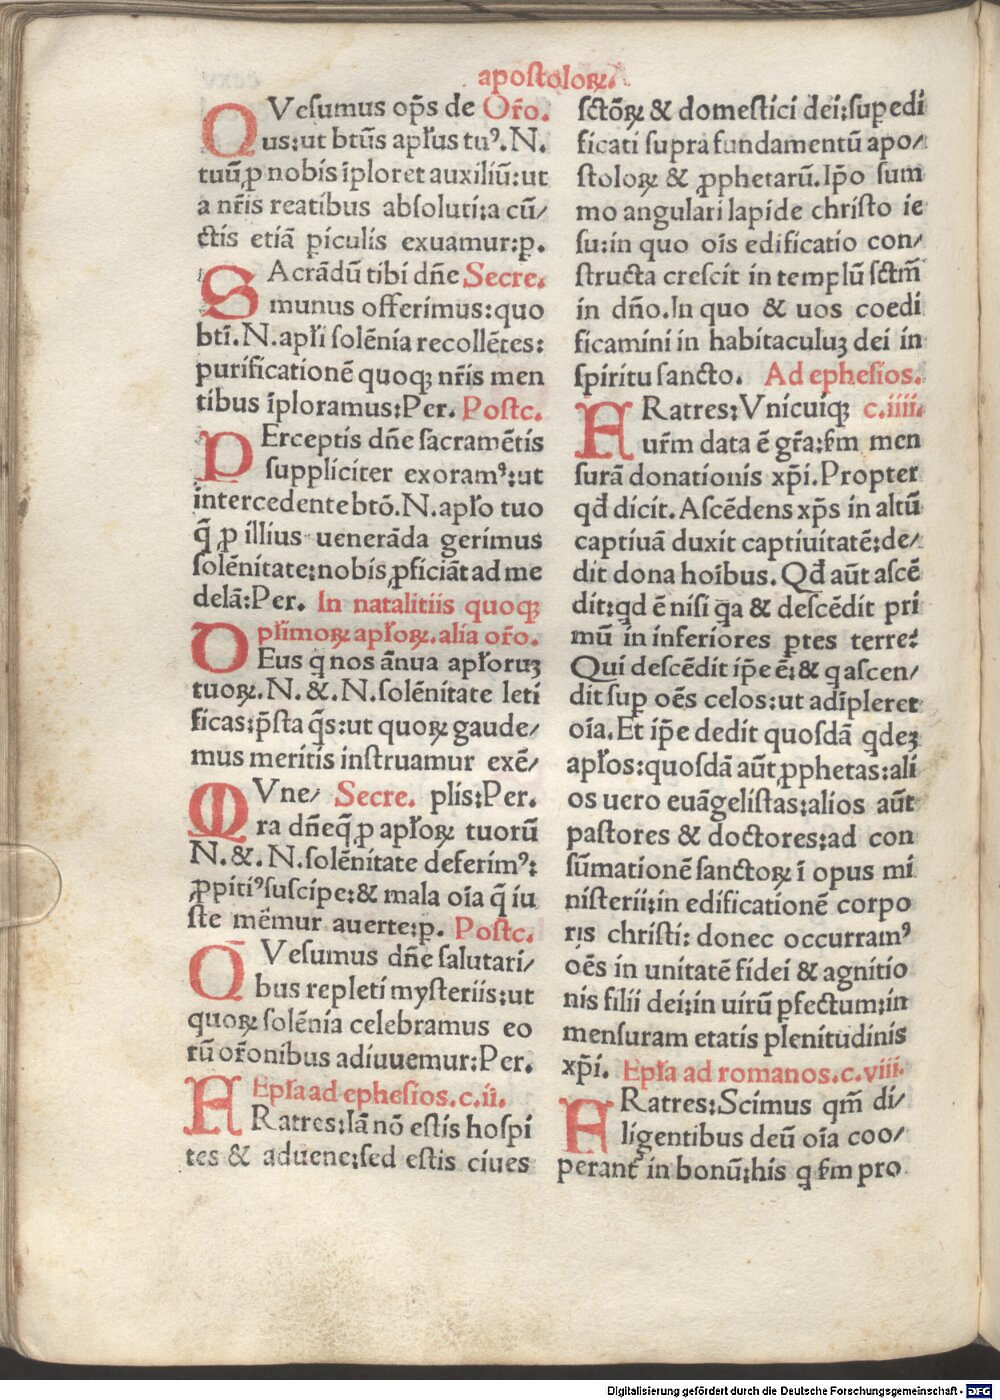 apostoloꝝ.
QVesumus op̄s de Or̄o.
us:ut btūs apl̄us tuꝰ.N.
tuū ꝓ nobis īploret auxiliū:ut
a nr̄is reatibus absoluti:a cū/
ctis etiā ꝑiculis exuamur:p.
SAcrādū tibi dn̄e Secre.
munus offerimus:quo
btī.N.apl̄i solēnia recollētes:
purificationē quoqꝫ nr̄is men
tibus īploramus:Per. Postc.
PErceptis dn̄e sacramētis
suppliciter exoramꝰ:ut
intercedente btō.N.apl̄o tuo
q̄ ꝓ illius uenerāda gerimus
solēnitate:nobis ꝓficiāt ad me
delā:Per. In natalitiis quoqꝫ
pl̄imoꝝ apl̄oꝝ.alia or̄o.
DEus q̄ nos ānua apl̄oruꝫ
tuoꝝ.N.&.N.solēnitate leti
ficas:p̄sta q̄s:ut quoꝝ gaude/
mus meritis instruamur exē/
MVne/ Secre. plis:Per.
ra dn̄e q̄ ꝓ apl̄oꝝ tuorū
N.&.N.solēnitate deferimꝰ:
ꝓpitiꝰ suscipe:& mala oīa q̄ iu
ste mēmur auerte:p. Postc.
QVesumus dn̄e salutari/
bus repleti mysteriis:ut
quoꝝ solēnia celebramus eo
rū or̄onibus adiuuemur:Per.
Epl̄a ad ephesios.c.ii.
FRatres:Iā nō estis hospi
tes & aduene:sed estis ciues
sctōꝝ & domestici dei:suꝑedi
ficati supra fundamentū apo/
stoloꝝ & ꝓphetarū.Ip̄o sum
mo angulari lapide christo ie
su:in quo oīs edificatio con/
structa crescit in templū sctm̄
in dn̄o.In quo & uos coedi
ficamini in habitaculuꝫ dei in
spiritu sancto. Ad ephesios.
FRatres:Vnicuiqꝫ c.iiii.
ur̄m data ē gr̄a:ẜm men
surā donationis xp̄i.Propter
qđ dicit.Ascēdens xp̄s in altū
captiuā duxit captiuitatē:de/
dit dona hoībus.Qđ aūt ascē
dit:qd ē nisi q̄a & descēdit pri
mū in inferiores ꝑtes terre?
Qui descēdit ip̄e ē:& q ascen/
dit suꝑ oēs celos:ut adīpleret
oīa.Et ip̄e dedit quosdā qdeꝫ
apl̄os:quosdā aūt ꝓphetas:ali
os uero euāgelistas:alios aūt
pastores & doctores:ad con
sūmationē sanctoꝝ ī opus mi
nisterii:in edificationē corpo
ris christi: donec occurramꝰ
oēs in unitatē fidei & agnitio
nis filii dei:in uirū ꝑfectum:in
mensuram etatis plenitudinis
xp̄i. Epl̄a ad romanos.c.viii.
FRatres:Scimus qm̄ di/
ligentibus deū oīa coo/
perant᷑ in bonū:his q ẜm pro
Digitalisierung gefördert durch die Deutsche Forschungsgemeinschaft - DFG